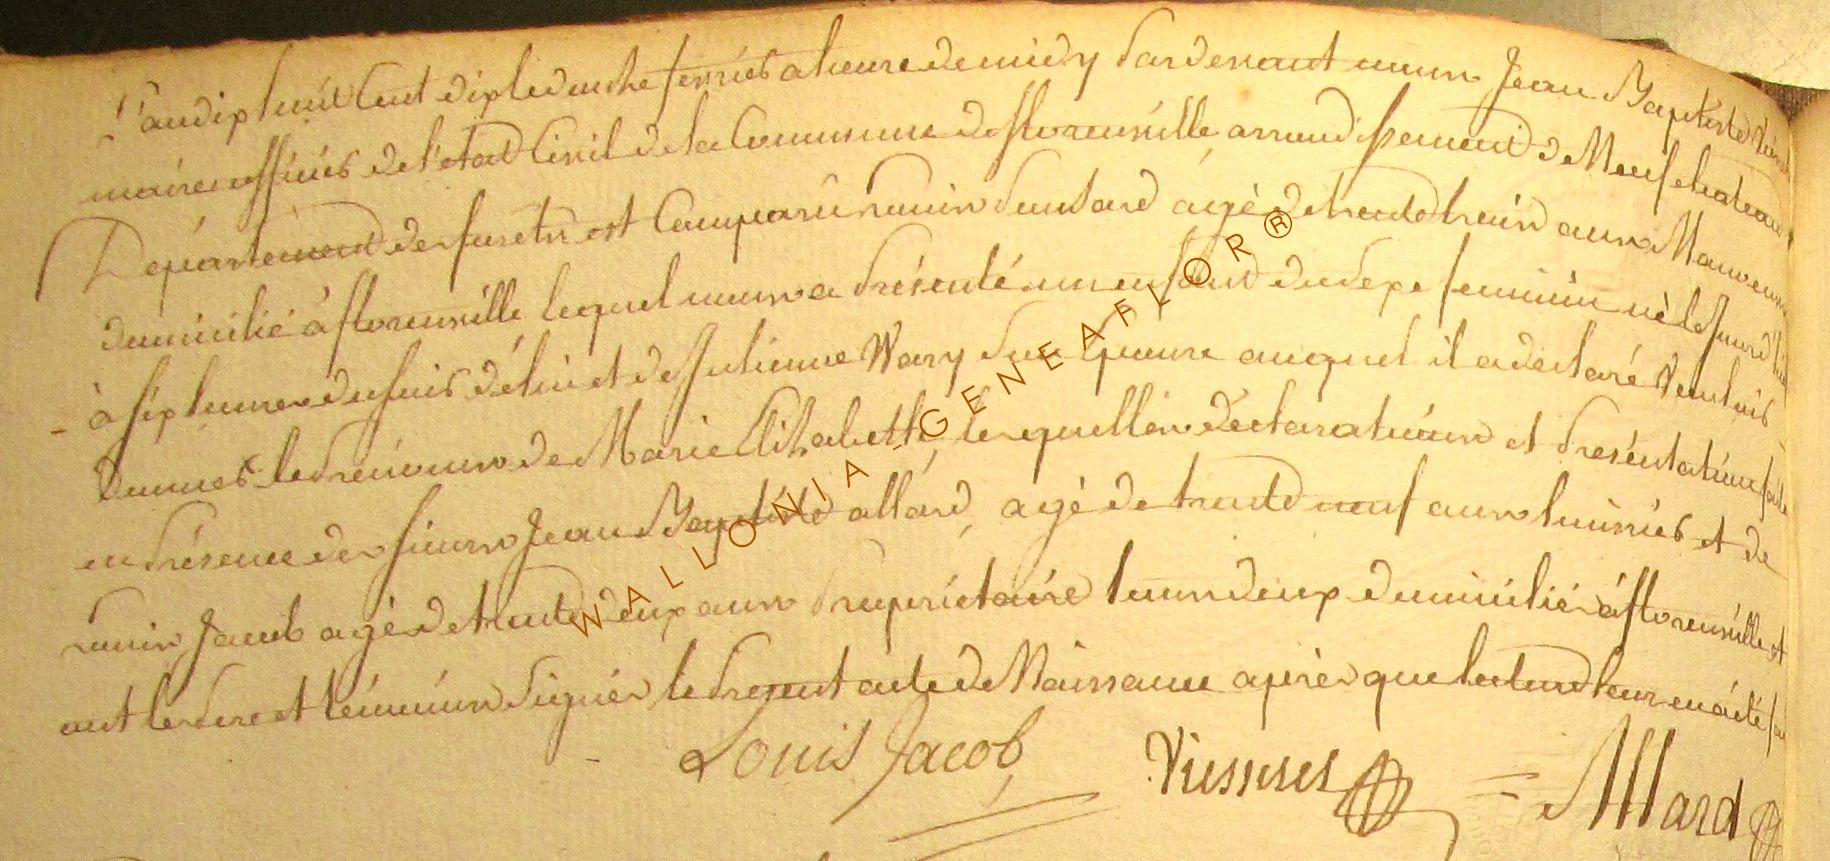 L'an dix huit cent dix le du fevrier a heure de midy pardevant nous Jean Baptiste
maire officier de l'etat Civil de la Commune de florenville arrondissement de Neufchateau
Département des foretz est Comparu agé de trente trois ans Manoeuvre
domicilié à florenville lequel nous a présenté un enfant du sexe feminin né le Jourd'hui
à six heures du soir de lui et de Julienne Wary son epouse auquel il a declaré Vouloir
donner le prenoms de Marie Elizabette, lesquelles déclarations et présentation faite
en présence des sieurs Jean Baptiste allard, agé de trente neuf ans huissier et de
Louis Jacob agé de trente deux ans propriétaire tous deux domiciliés à florenville et
ont les pere et témoins signés le present acte de Naissance après que lecture leur en a été
Louis Jacob Allard
WALLONIA - GENEAFLOR®